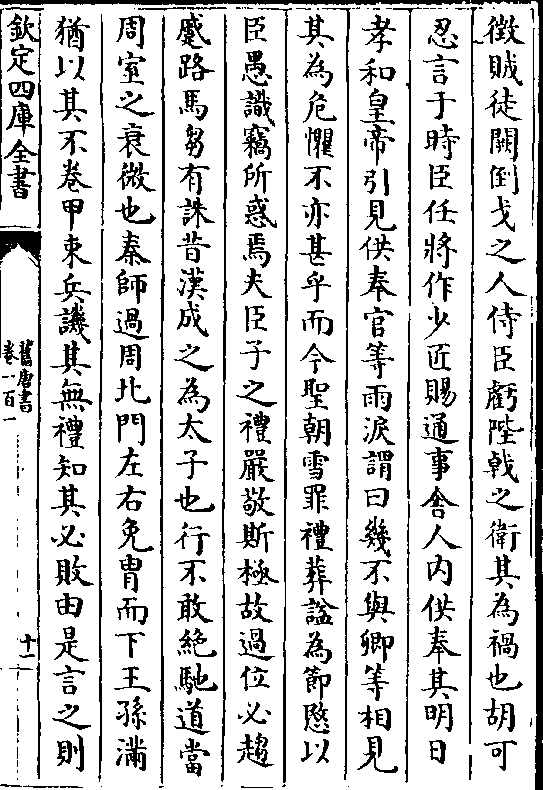 徴賊徒闕倒戈之人侍臣虧陛㦸之衛其為禍也胡可
忍言于時臣任將作少匠賜通事舎人内供奉其明日
孝和皇帝引見供奉官等雨淚謂曰幾不與卿等相見
其為危懼不亦甚乎而今聖朝雪罪禮葬諡為節愍以
臣愚識竊所惑焉夫臣子之禮嚴敬斯極故過位必趨
蹙路馬芻有誅昔漢成之為太子也行不敢絶馳道當
周室之衰微也秦師過周北門左右免胄而下王孫滿
猶以其不卷甲束兵譏其無禮知其必敗由是言之則
欽定四庫全書
舊唐書
卷一百一
十一